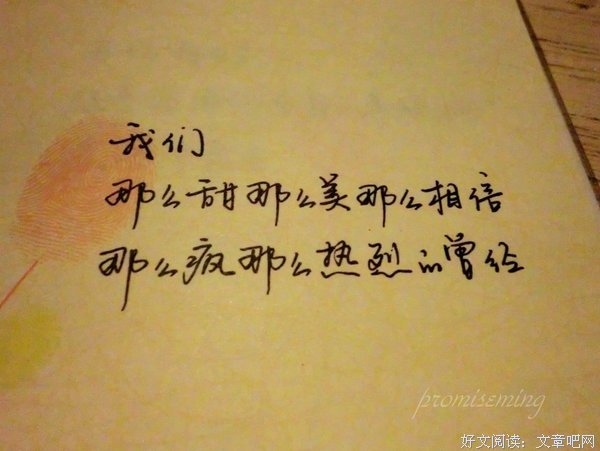 我们
那么甜那么美那么相信
那么疯那么热烈的曾经
promiseming
好文阅读：文章吧网